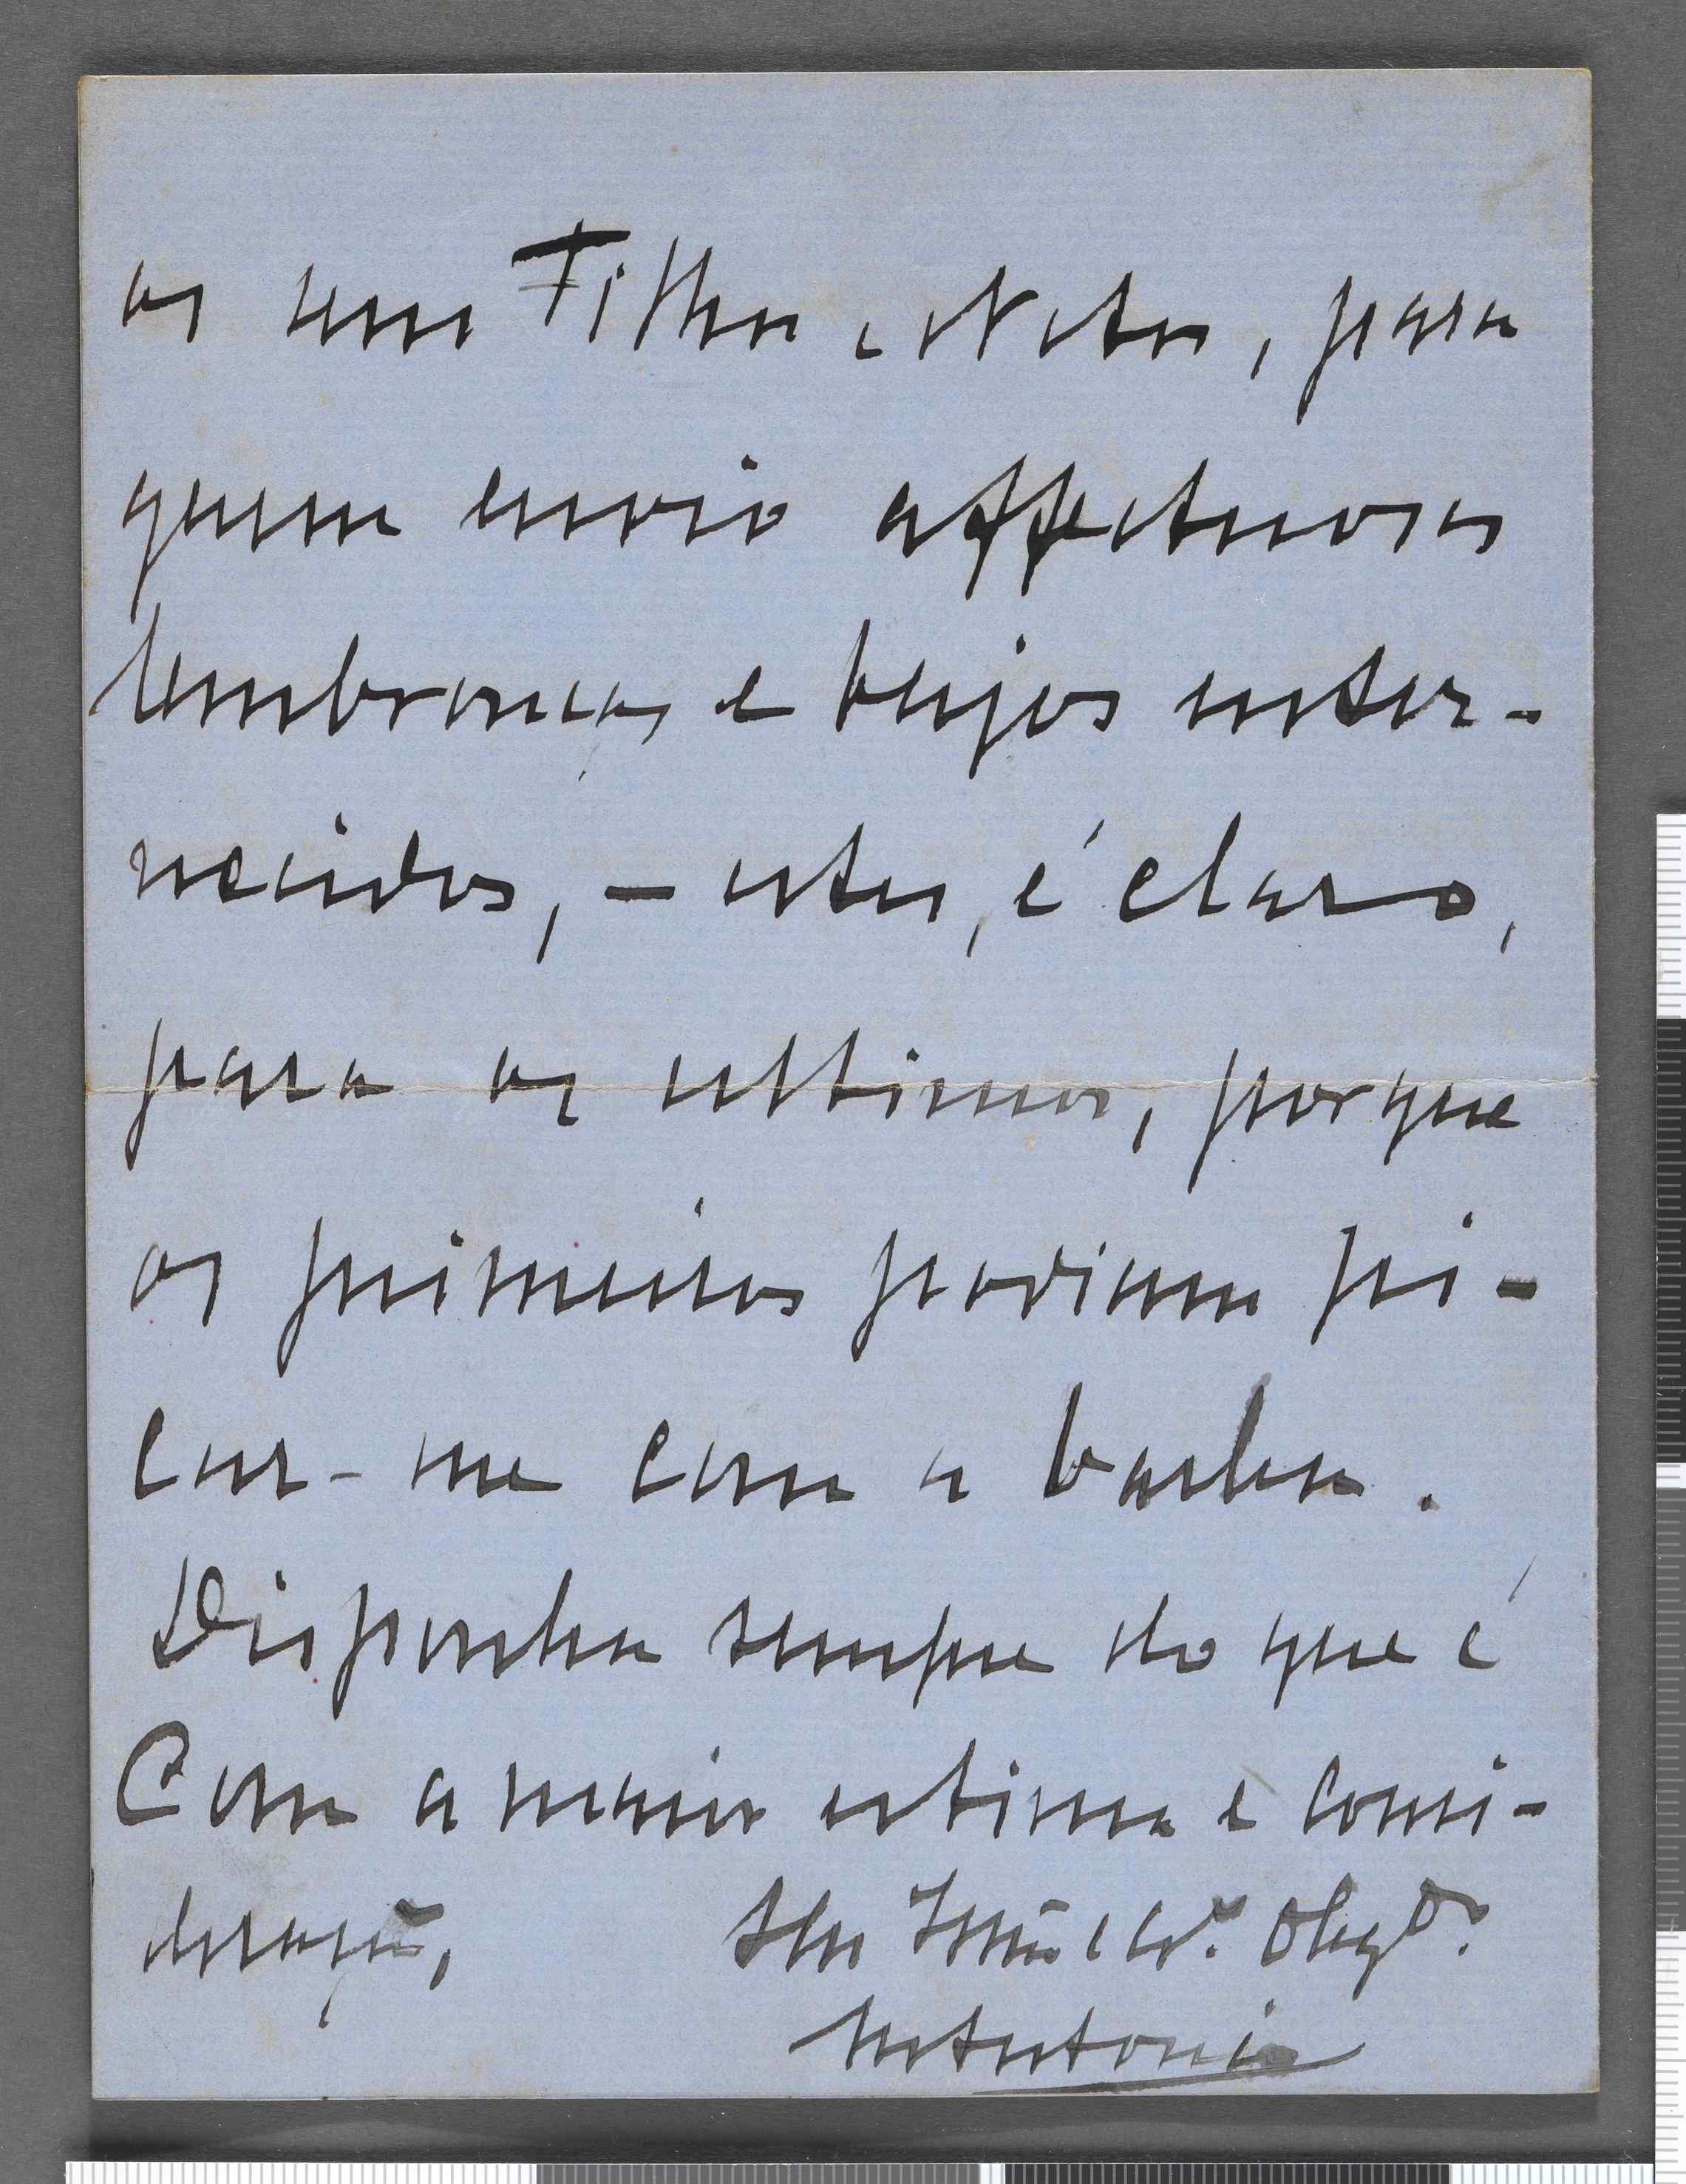 os seus Filhos e Netos, para
quem envio affectuosas
lembranças e beijos enter-
necidos, - estes, é claro,
para os ultimos, porque
os primeiros podiam pi-
car-me com a barba.
Disponha sempre do que é
Com a maior estima e consi-
deração,
Seu Irmão e Cr.º Obg.do